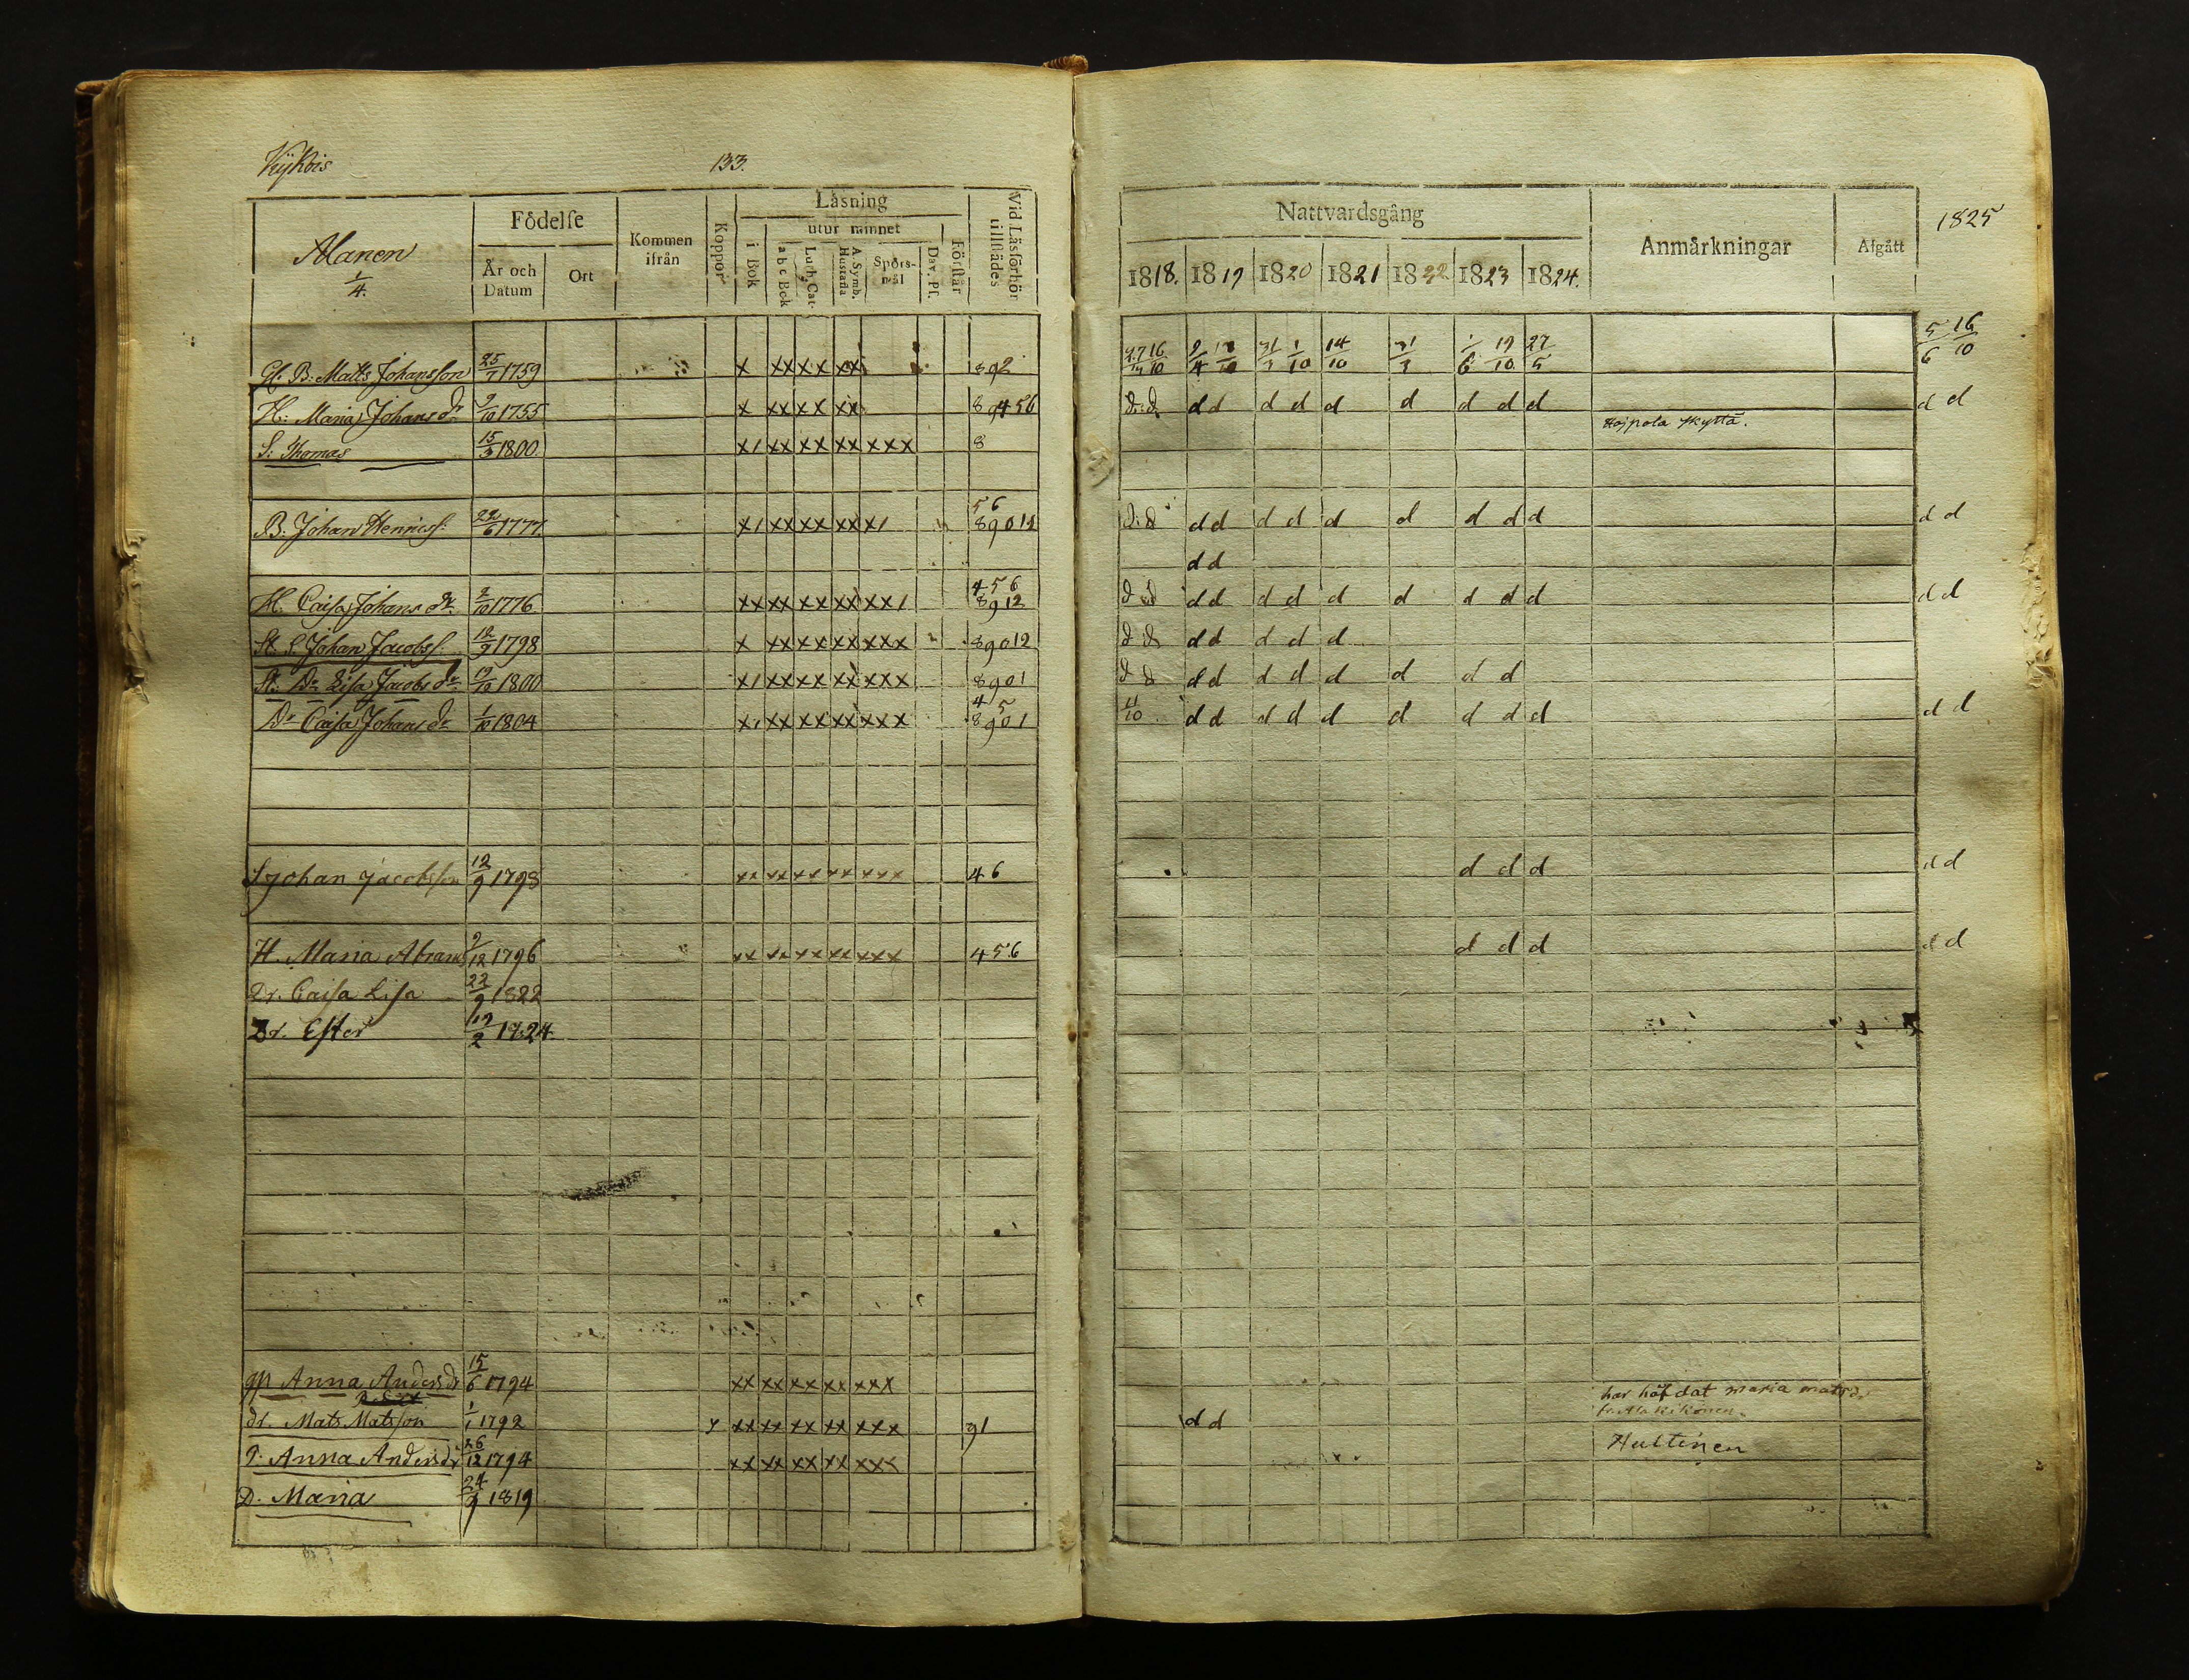 133.
Alanen
1/4.
Födelse
År och Datum
Ort
Kommen ifrån
Koppor
Läsning
i Bok
utur minnet
a b c Bok
Luth. Cat.
A. Symb. Hustafla
Spörs-mål
Dav. Ps.
Förstår
Vid Läsförhör tillstädes
Gl. B: Matts Johansson 25/7 1759 x xx xx xx 8 9 2
H: Maria Johansdr 9/10 1755 x xx xx xx 8 9 4 5 6
S: Thomas 15/3 1800 x/ xx xx xx xxx 8
5 6
B: Johan Henrics: 22/6 1777. x/ xx xx xx x/ 8 9 0 1 2
4 5 6
H. Caisa Johansdr 2/10 1776 xx xx xx xx xx/ 8 9 1 2
St. S. Johan Jacobs: 12/9 1798 x xx xx xx xxx 8 9 0 1 2
St. Dr Lisa Jacobsdr 9/10 1800 x/ xx xx xx xxx 8 9 0 1
4 5
Dr Caisa Johansdr 1/10 1804 x/ xx xx xx xxx 8 9 0 1
S Johan Jacobsson 12/9 1798 xx xx xx xx xxx 4 6
H. Maria Abrams 9/12 1796 xx xx xx xx xxx 4 5 6
Dr. Caisa Lisa 22/9 1822
Dr. Ester 19/2 1824.
Anna Andersdr 15/6 1794 xx xx xx xx xxx
dr. Mats Matsson 1/1 1792 y xx xx xx xx xxx 9 1
P. Anna Andersdr 26/12 1794 xx xx xx xx xxx
D. Maria 24/9 1819
Nattvardsgång
Anmärkningar
Afgått
1825
1818. 1819 1820 1821 1822 1823 1824.
16/10 9/4 31/3 1/10 14/10 31/3 1/6 19/10 27/5 5/6 16/10
d. d d d d d d d d d d d d
d. d d d d d d d d d d d d
d d
d d d d d d d d d d d d d
d d d d d d d
d d d d d d d d d d
11/10 d d d d d d d d d d d
d d d d d
d d d d d
har häfdat maria matsdr
d d
Hultinen